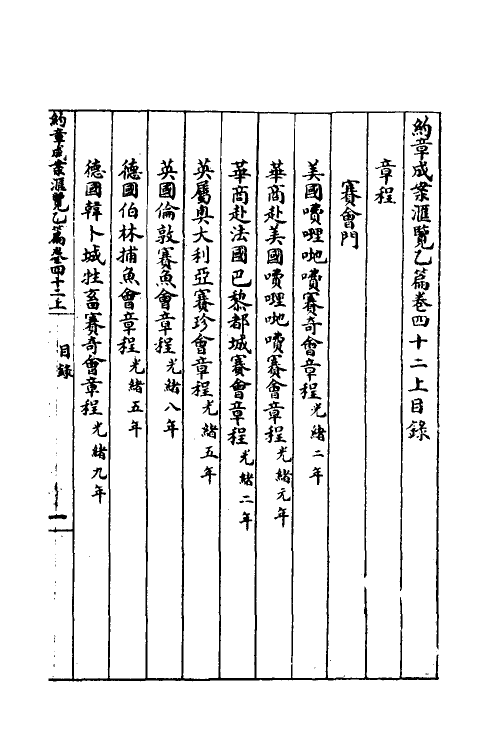 約章成案滙覽乙篇卷四十二上目錄
章程
賽會門
美國嘳哩吔嘳賽奇會章程光緒二年
華商赴美國嘳哩吔嘳賽會章程光緒元年
華商赴法國巴黎都城賽會章程光緒二年
英屬奥大利亞賽珍會章程光緒五年
英國倫敦賽魚會章程光緒八年
德國伯林捕魚會章程光緒五年
德國韓卜城牲畜賽奇會章程光緒九年
約章成案滙覽乙篇卷四十二上
目錄
一